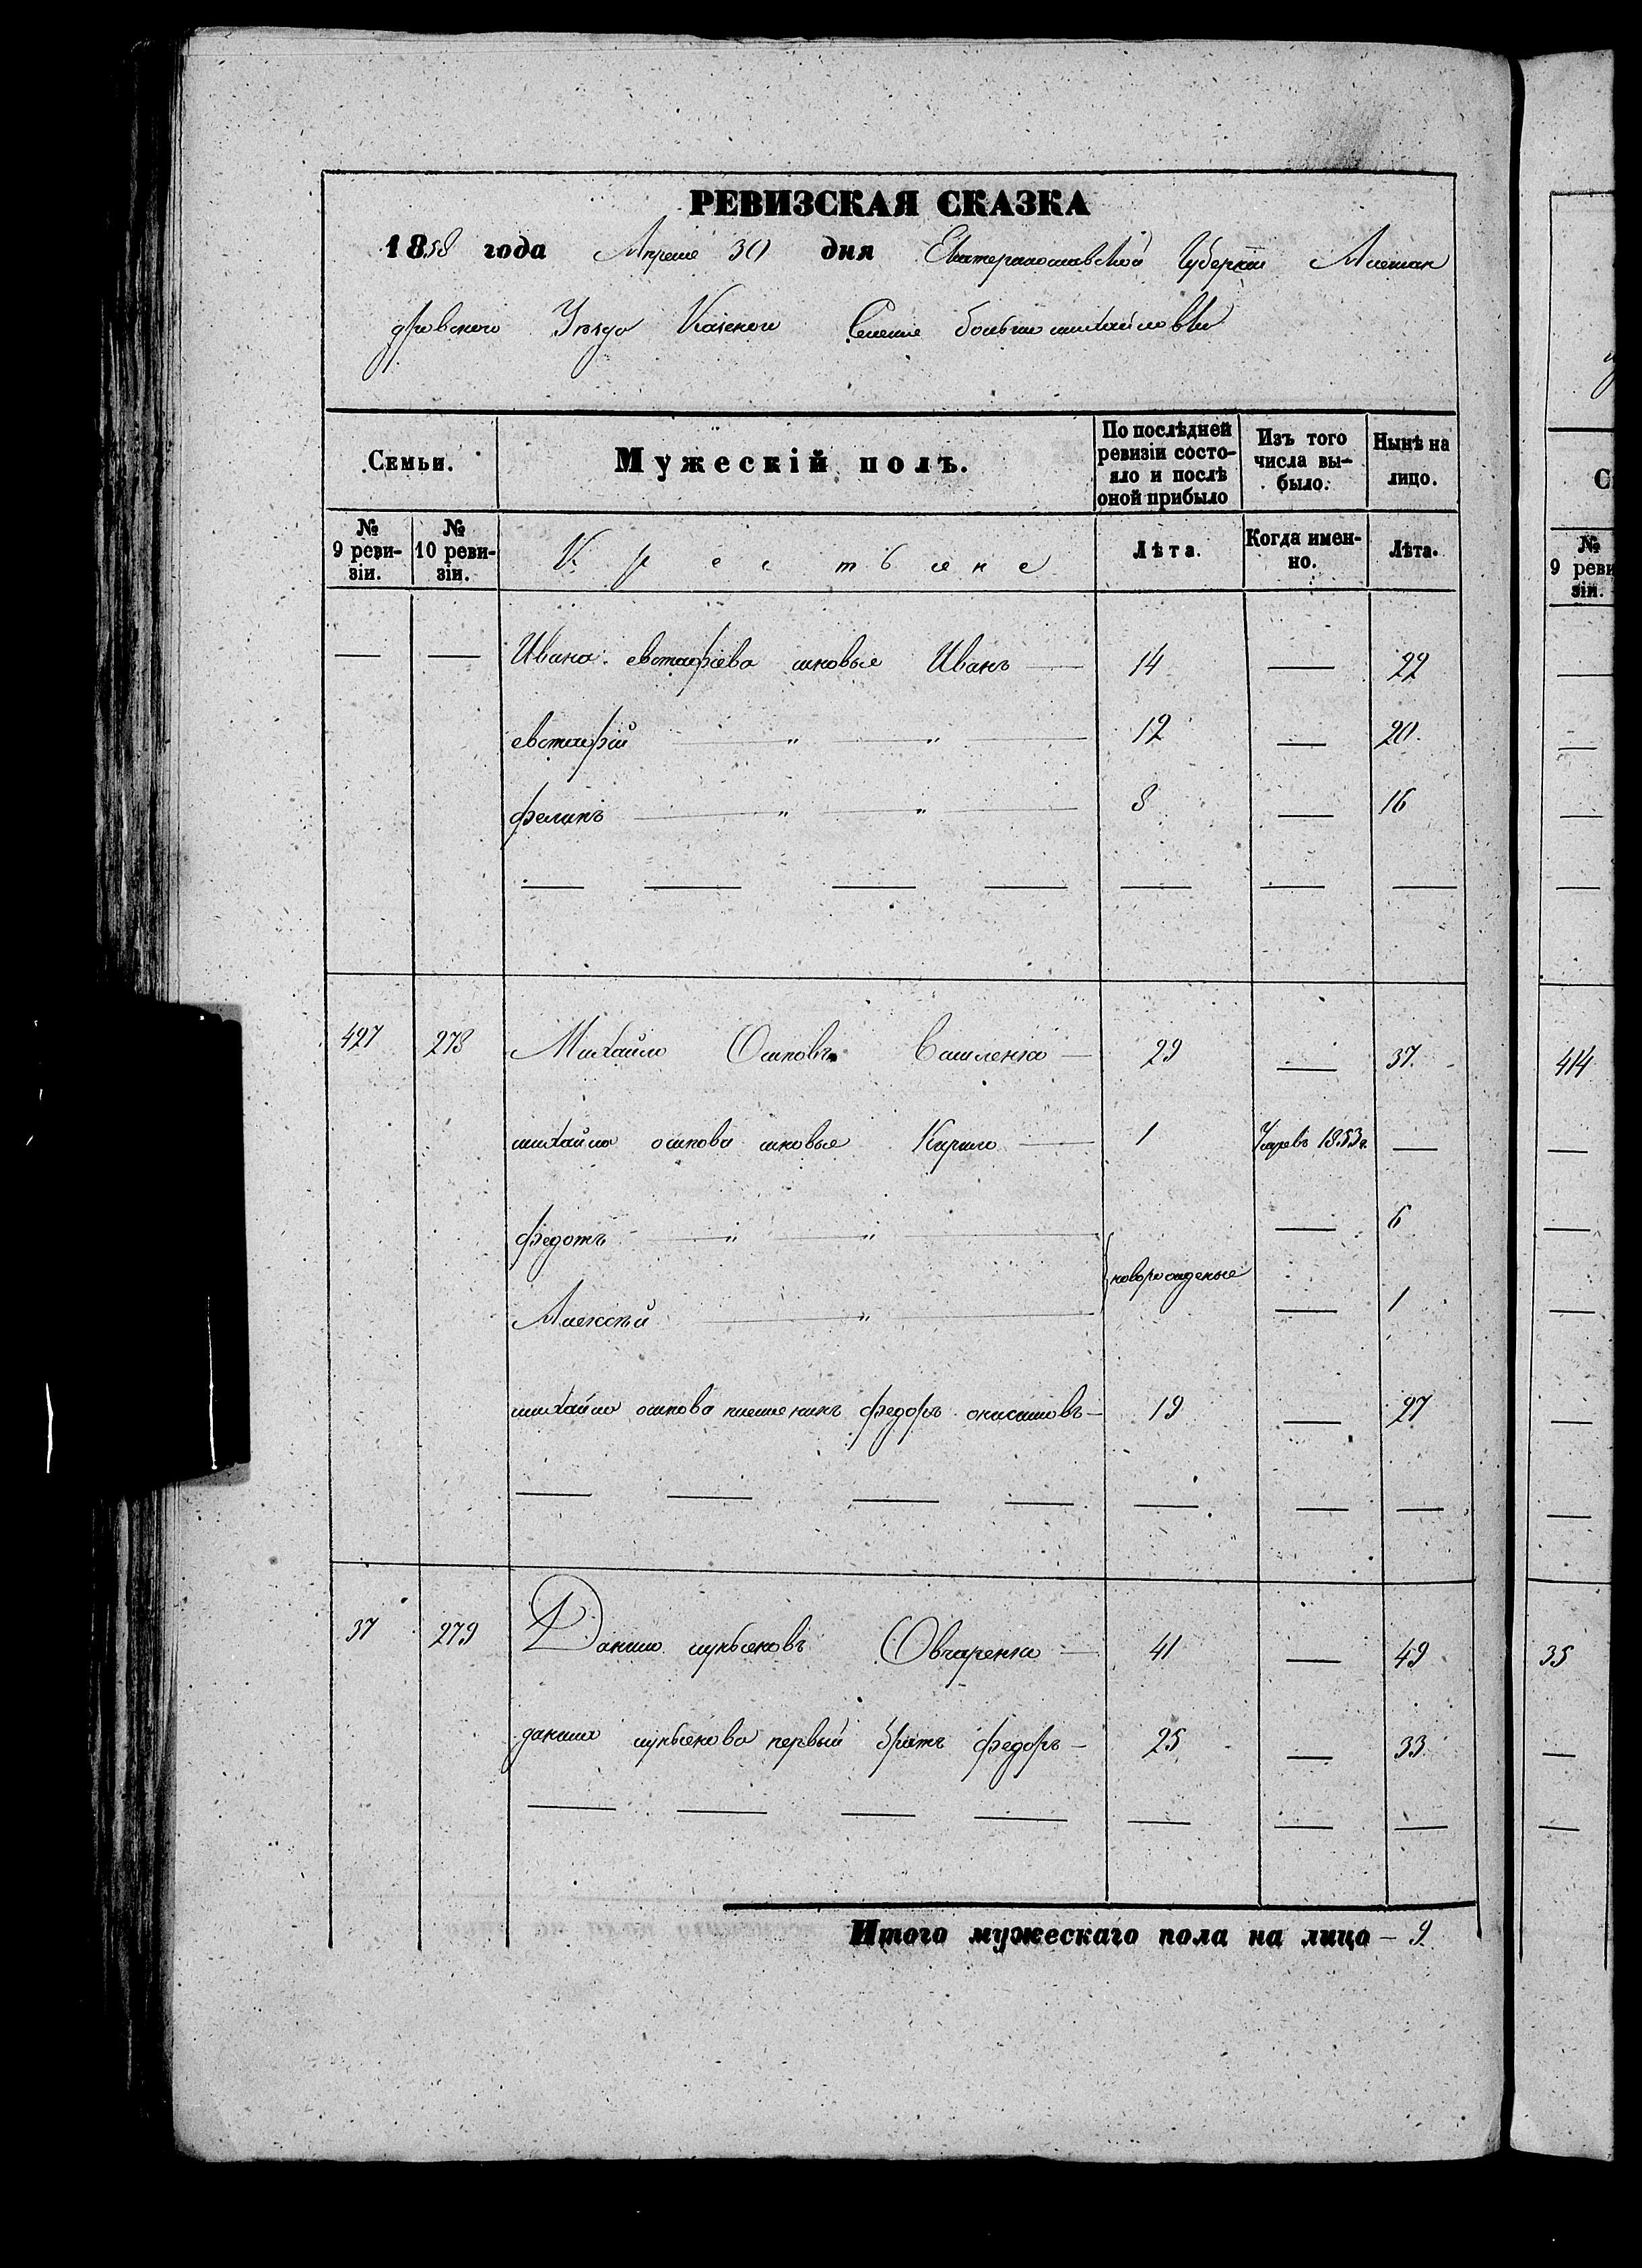 РЕВИЗСКАЯ СКАЗКА
1858 года Апреля 30 дня Екатеринославской Губернии Алексан
дровского Уезда Казеного Селения больше михайловки
Семьи. Мужескій полъ. По послѣдней ревизіи состояло и послѣ оной прибыло Изъ того числа выбыло. Нынѣ на лицо.
№ 9 ревизіи. № 10 ревизіи. Крестьяне Лѣта. Когда именно. Лѣта.
— — Ивана евстафіева сыновье Иванъ — 14 — 22
евстафій — " — " — 12 — 20
филипъ — " — " — 8 — 16
427 278 Михайло Осиповъ Василенко — 29 — 37
михайла осипова сыновье Кирило — 1 Умре въ 1853г. —
федотъ — " — " — — 6
новорожденые
Алексѣй — " — — 1
михайла осипова племеникъ федоръ — 19 — 27
37 279 Данило лукьяновъ Овчаренко — 41 — 49
данила лукьянова первый братъ федоръ — 25 — 33
Итого мужескаго пола на лицо — 9
С
№ 9 реви зіи.
414
35